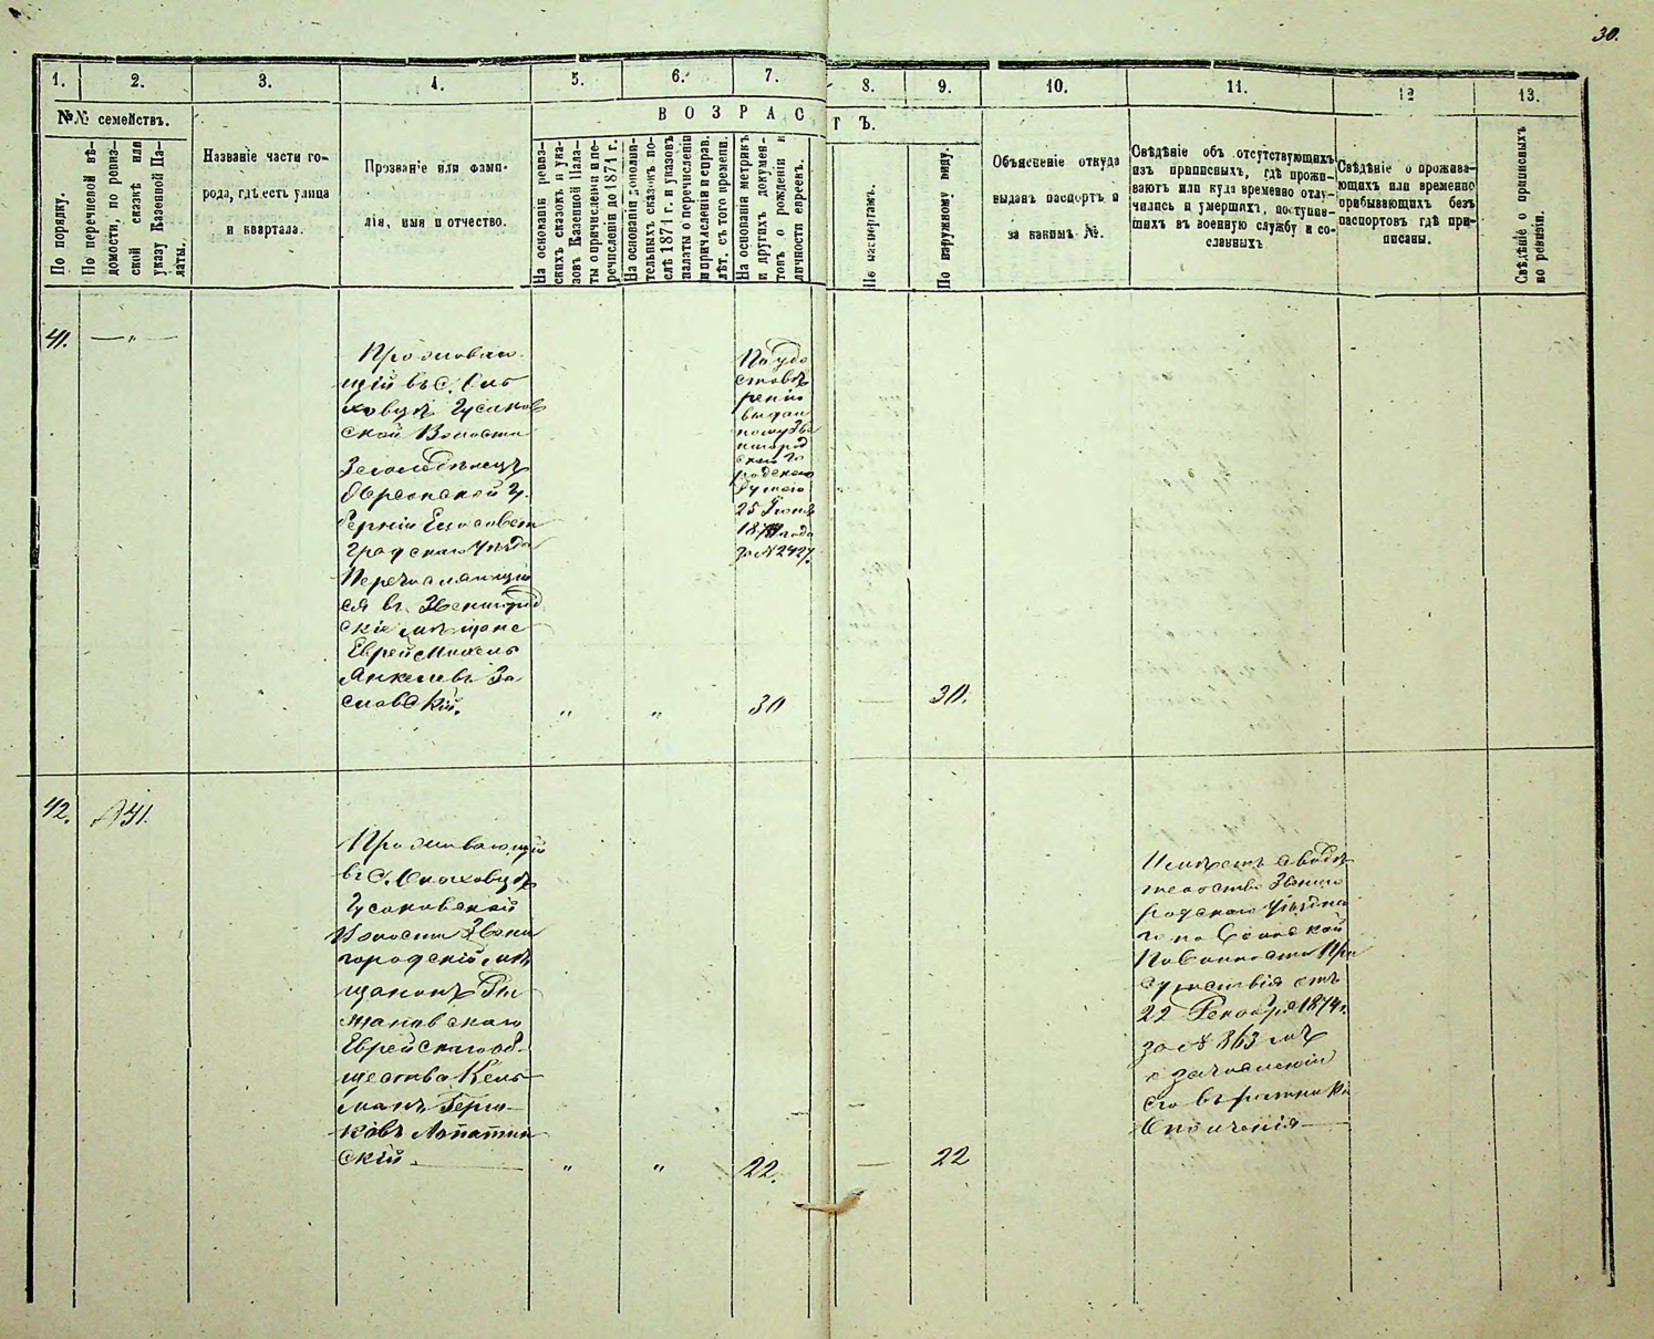 30.
1.
2.
3.
4.
5.
6.
7.
8.
9.
10.
11.
12
13.
№№ семействъ.
По порядку.
По перечневой вѣ-
домости, по ревиз-
ской сказкѣ или
указу Казенной Па-
латы.
Названіе части го-
рода, гдѣ есть улица
и квартала.
Прозваніе или фами-
лія, имя и отчество.
ВОЗРАСТЪ.
На основаніи ревиз-
скихъ сказокъ и ука-
зовъ Казенной Пала-
ты о причисленіи и пе-
речисленіи до 1871 г.
На основаніи дополни-
тельныхъ сказокъ по-
слѣ 1871 г. и указовъ
палаты о перечисленіи
и причисленіи и справ.
лѣт. съ того времени.
На основаніи метрикъ
и другихъ докумен-
товъ о рожденіи и
личности евреевъ.
По паспортамъ.
По наружному виду.
Объясненіе откуда
выданъ паспортъ и
за какимъ №.
Свѣдѣніе объ отсутствующихъ
изъ приписныхъ, гдѣ прожи-
ваютъ или куда временно отлу-
чились и умершихъ, поступив-
шихъ въ военную службу и со-
сланныхъ
Свѣдѣніе о прожива-
ющихъ или временно
прибывающихъ безъ
паспортовъ гдѣ при-
писаны.
Свѣдѣніе о приписныхъ
по ревизіи.
41.
— „ —
Проживаю
щій въ с.
Гусаков
ской Волости
Земледѣлецъ
Херсонской Гу
берніи Елисавет
градскаго Уѣзда
Перечисляющій
ся въ Звенигород
скіе мѣщане
Еврей
Янкелевъ За
славскій.
„
„
30
—
30.
По удо
стовѣ
ренію
выдан
ному Зве
нигород
скою Го
родскою
Думою
25 Іюня
года
за № 2427.
42.
№ 41.
Проживающій
въ с.
Гусаковской
Волости Звени
городскій мѣ
щанинъ
жановскаго
Еврейскаго об-
щества Кель
манъ Герш-
ковъ Лопатин
скій.
„
„
22.
—
22
Имѣетъ свидѣ
тельство Звениго
родскаго Уѣздна
го по воинской
Повинности При
сутствія отъ
22 Декабря 1874 г.
за № 363 мъ
о зачисленіи
его въ ратники
Ополченія